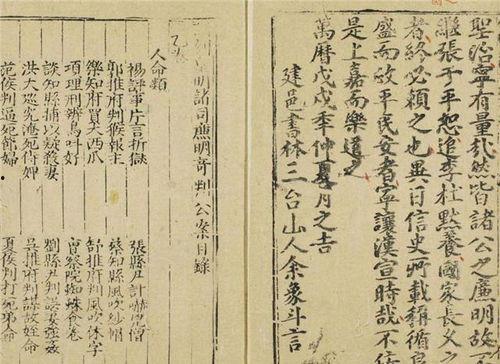 聖治寧有量哉然皆諸公之廉明故
繼張于平恕追李杜默養國家長久之
者終必賴之也異日信史所載稱循良
盛而故平民安者寧讓漢宣時哉不佞
是上嘉而樂道之
萬曆戊戌季仲夏月之吉
建邑書林三台山人余象斗言
明諸司廉明奇判公案目錄
人命類
楊評事片言折獄 張縣尹計嚇凶僧
郭推府判猴報主 蔡知縣風吹紗帽
樂知府買大西瓜 舒推府判風吹休字
項理刑辨鳥叫好 曾察院蜘蛛食卷
談知縣捕以疑殺妻 劉縣尹判誤妻強姦
洪大巡究淹死侍婢 吳推府判謀故姪命
范侯判逼死節婦 夏侯判打死弟命